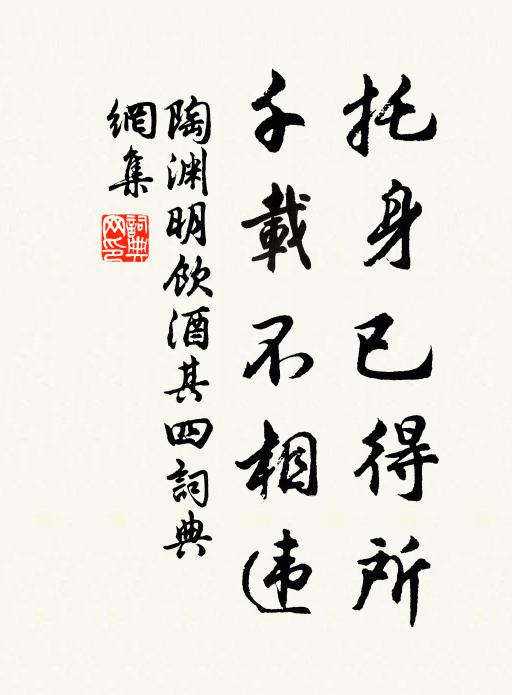 托身已得所
千載不相违
陶渊明飲酒其四詞典
網集
詞典
网印